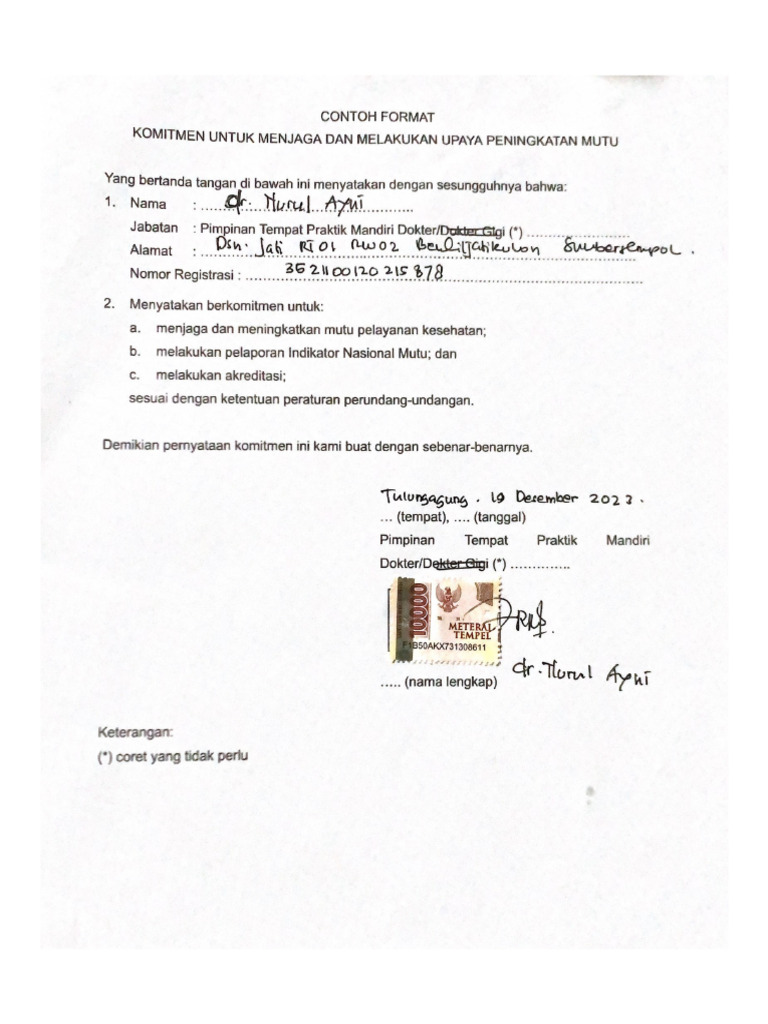 CONTOH FORMAT
KOMITMEN UNTUK MENJAGA DAN MELAKUKAN UPAYA PENINGKATAN MUTU
Yang bertanda tangan di bawah ini menyatakan dengan sesungguhnya bahwa:
1. Nama : dr. Nurul Ayni
Jabatan : Pimpinan Tempat Praktik Mandiri Dokter/Dokter Gigi (*) ........................
Alamat : Dsn. Jati RT01 RW02 Sumbergempol.
Nomor Registrasi : 3521100120215878
2. Menyatakan berkomitmen untuk:
a. menjaga dan meningkatkan mutu pelayanan kesehatan;
b. melakukan pelaporan Indikator Nasional Mutu; dan
c. melakukan akreditasi;
sesuai dengan ketentuan peraturan perundang-undangan.
Demikian pernyataan komitmen ini kami buat dengan sebenar-benarnya.
Tulungagung. 19 Desember 2023.
... (tempat), .... (tanggal)
Pimpinan Tempat Praktik Mandiri
Dokter/Dokter Gigi (*) ..............
10000
METERAI
TEMPEL
F1B50AKX731308611
dr. Nurul Ayni
..... (nama lengkap)
Keterangan:
(*) coret yang tidak perlu